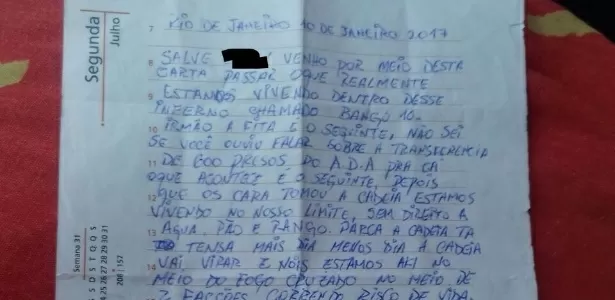 Segunda
Julho
7 RIO DE JANEIRO 10 DE JANEIRO 2017
8 SALVE VENHO POR MEIO DESTA
CARTA PASSAR OQUE REALMENTE
9 ESTAMOS VIVENDO DENTRO DESSE
INFERNO CHAMADO BANGO 10.
10 IRMÃO A FITA E O SEQUINTE, NÃO SEI
SE VOCÊ OUVIU FALAR SOBRE A TRANSFERENCIA
11 DE 600 PRESOS DO A.D.A PRA CÁ
OQUE ACONTECE É O SEQUINTE, DEPOIS
12 QUE OS CARA TOMOU A CADEIA ESTAMOS
VIVENDO NO NOSSO LIMITE, SEM DIREITO A
13 AGUA, PÃO E RANGO. PARÇA A CADEIA TA
TENSA MAIS DIA MENOS DIA A CADEIA
14 VAI VIRAR E NÓIS ESTAMOS AKI NO
MEIO DO FOGO CRUZADO NO MEIO DE
2 FACÇÕES CORRENDO RISCO DE VIDA.
Semana 31
S D S T Q Q S
24 25 26 27 28 29 30 31
208 | 157